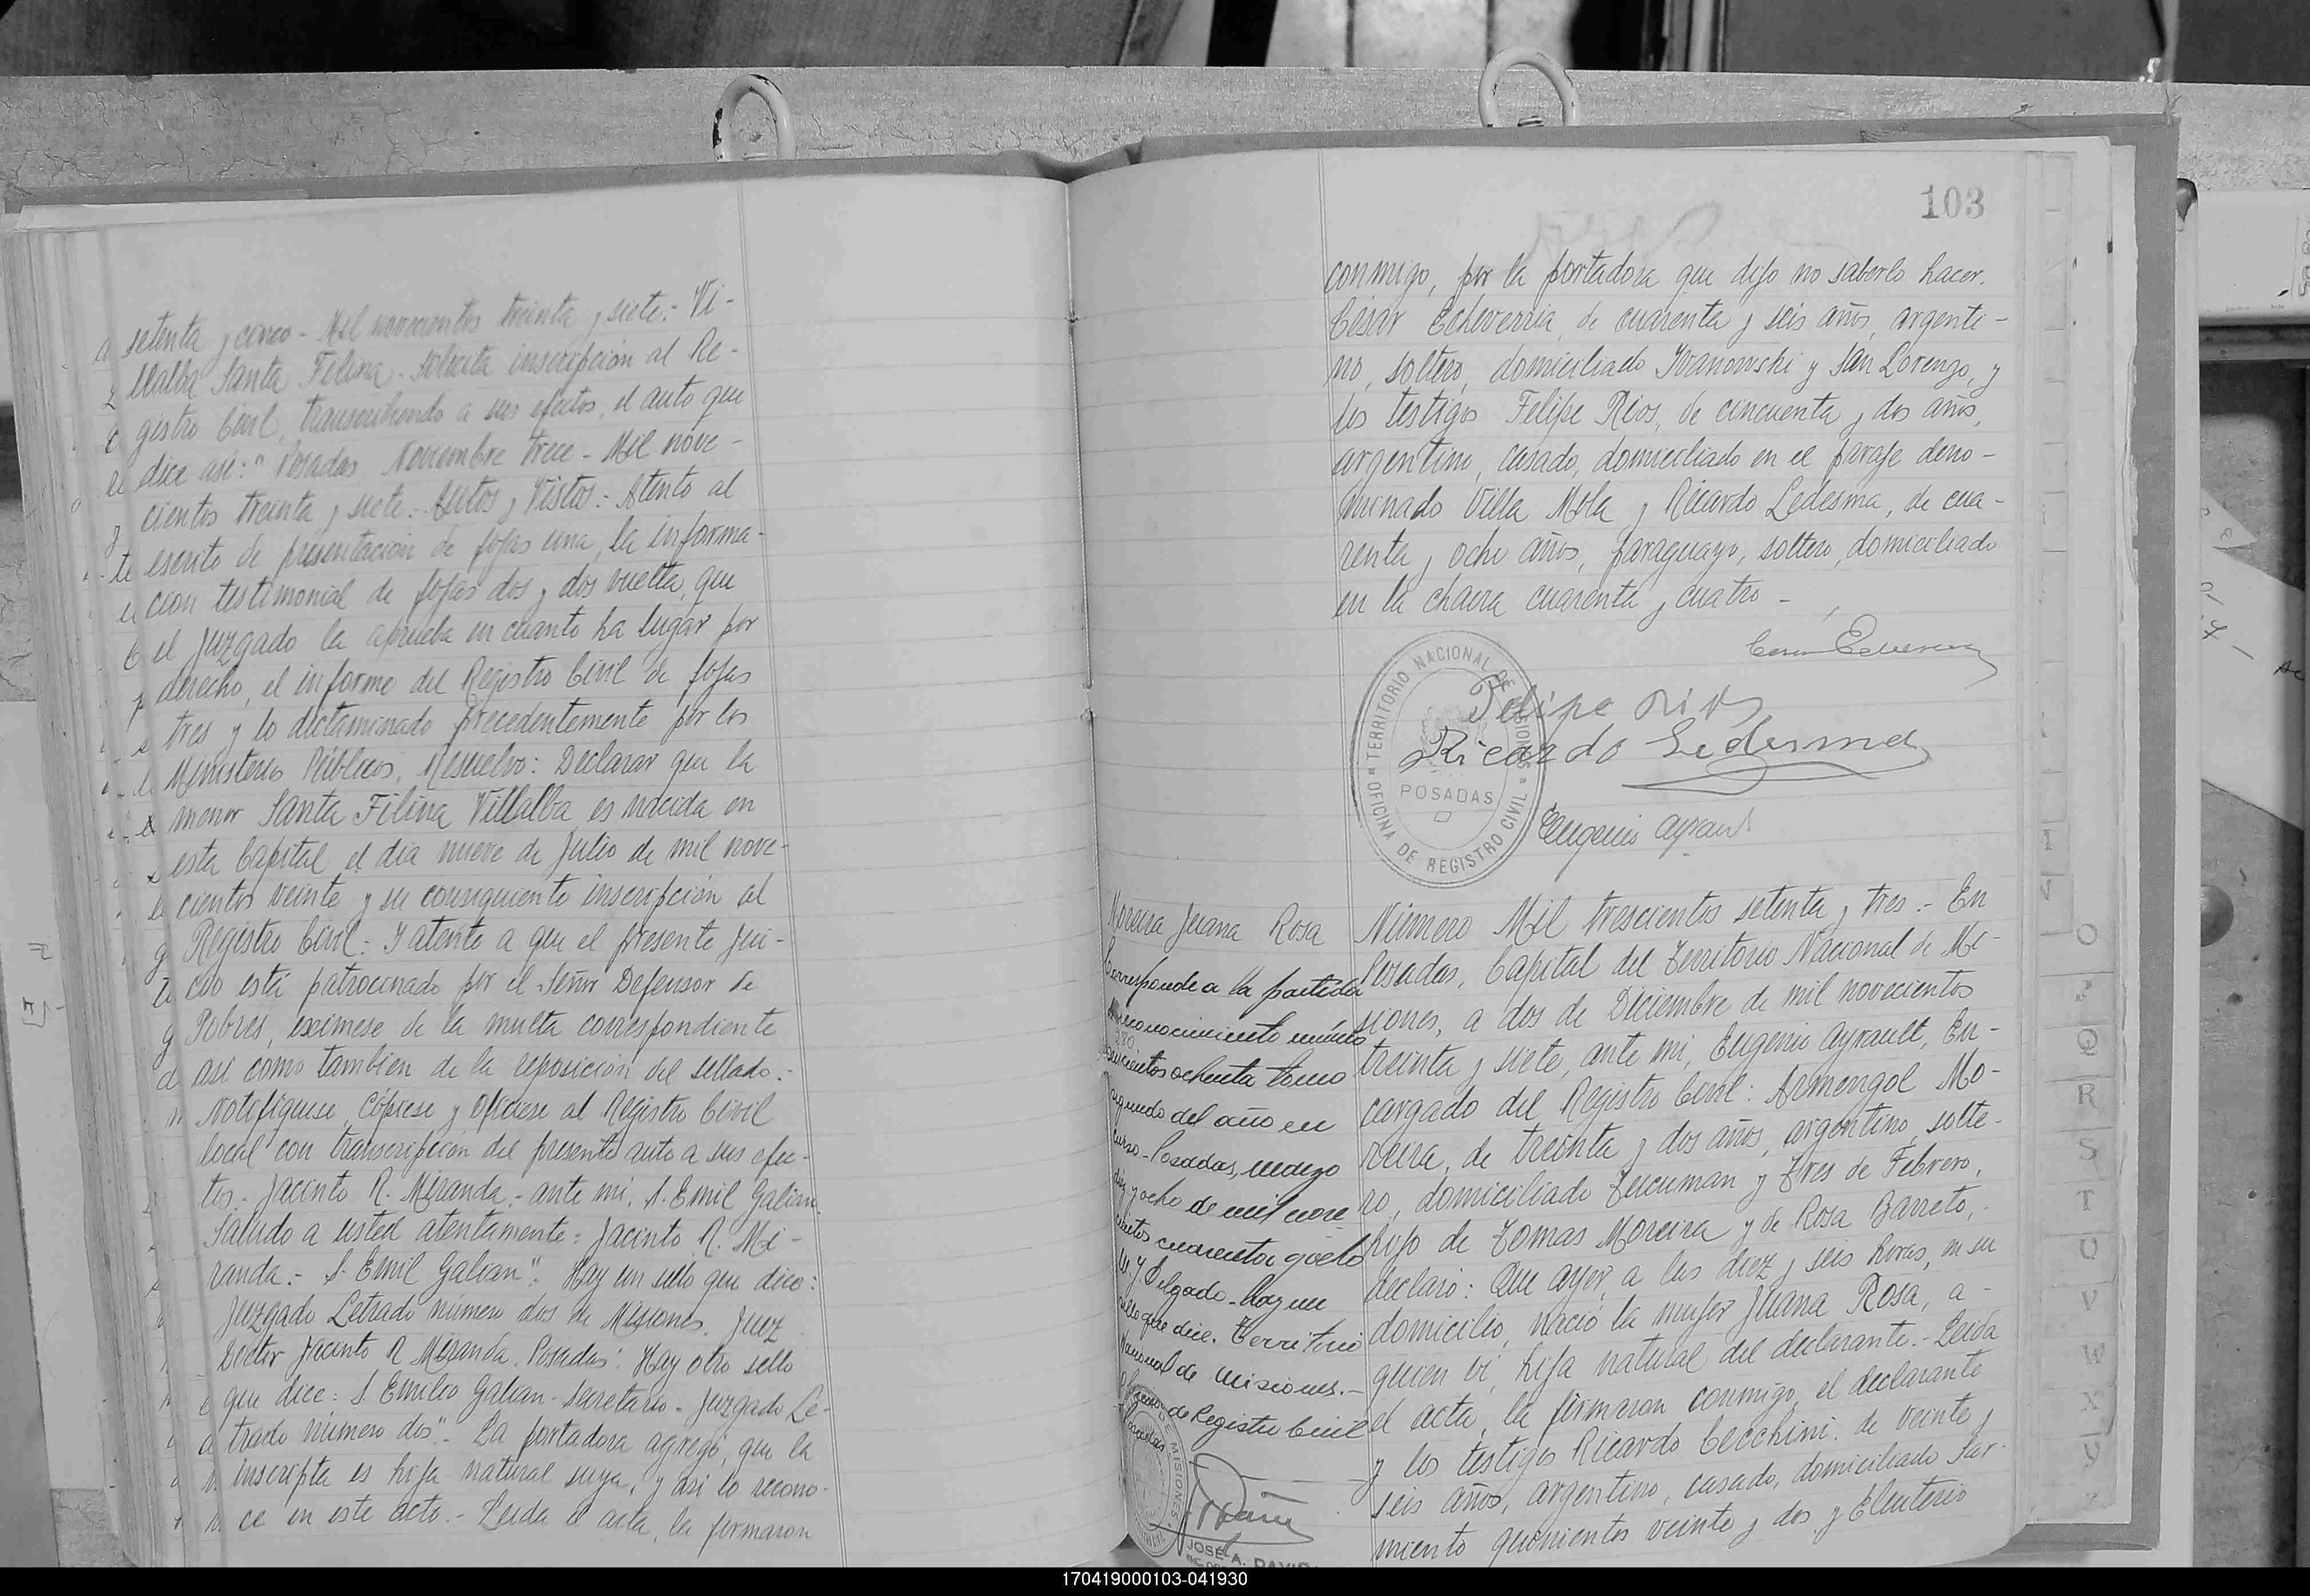 setenta y cinco - Mil novecientos treinta y siete:- Vi-
llalba Santa Filina - solicita inscripción al Re-
gistro Civil, transcribiendo a sus efectos, el auto que
dice asi: "Posadas, Noviembre trece - Mil nove-
cientos treinta y siete:- Autos y Vistos:- Atento al
escrito de presentación de fojas una, la informa-
cion testimonial de fojas dos y dos vuelta, que
el Juzgado la aprueba en cuanto ha lugar por
derecho, el informe del Registro Civil de fojas
tres y lo dictaminado precedentemente por los
Ministerios Públicos, Resuelvo: Declarar que la
menor Santa Filina Villalba es nacida en
esta Capital el dia nueve de Julio de mil nove-
cientos veinte y su consiguiente inscripción al
Registro Civil:- Y atento a que el presente jui-
cio está patrocinado por el Señor Defensor de
Pobres, eximese de la multa correspondiente
asi como tambien de la reposición del sellado:-
Notifiquese, Cópiese y Ofíciese al Registro Civil
local con transcripción del presente auto a sus efec-
tos.- Jacinto R. Miranda.- ante mi. S. Emil Galian.
Saludo a usted atentamente: Jacinto R. Mi-
randa:- S. Emil Galian". Hay un sello que dice:
Juzgado Letrado número dos de Misiones. Juez
Doctor Jacinto R Miranda. Posadas". Hay otro sello
que dice: S. Emilio Galian - Secretario - Juzgado Le-
trado número dos".- La portadora agregó, que la
inscripta es hija natural suya, y asi lo recono-
ce en este acto.- Leida el acta, la firmaron
103
conmigo, por la portadora que dijo no saberlo hacer.
César Echeverria, de cuarenta y seis años, argenti-
no, soltero, domiciliado Ivanowski y San Lorenzo, y
los testigos Felipe Rios, de cincuenta y dos años,
argentino, casado, domiciliado en el paraje deno-
minado Villa Mola y Ricardo Ledesma, de cua-
renta y ocho años, paraguayo, soltero, domiciliado
en la chacra cuarenta y cuatro -
Cesar Echeverria
Felipe Rios
Ricardo Ledesma
TERRITORIO NACIONAL DE MISIONES
POSADAS
OFICINA DE REGISTRO CIVIL
Eugenio Ayrault
Moreira Juana Rosa
Corresponde a la partida
reconocimiento número
280
ochenta tomo
segundo del año en
curso - Posadas, marzo
diez y ocho de mil nove
cientos cuarenta y ocho
Delgado - Hay un
sello que dice. Territorio
Nacional de Misiones.-
de Registro Civil
Posadas
DE MISIONES
JOSÉ A.
Número Mil trescientos setenta y tres:- En
Posadas, Capital del Territorio Nacional de Mi-
siones, a dos de Diciembre de mil novecientos
treinta y siete, ante mi, Eugenio Ayrault, En-
cargado del Registro Civil: Armengol Mo-
reira, de treinta y dos años, argentino, solte-
ro, domiciliado Tucuman y Tres de Febrero,
hijo de Tomas Moreira y de Rosa Barreto,
declaró: Que ayer, a las diez y seis horas, en su
domicilio, nació la mujer Juana Rosa, a
quien vi, hija natural del declarante.- Leida
el acta, la firmaron conmigo, el declarante
y los testigos Ricardo Cecchini, de veinte y
seis años, argentino, casado, domiciliado Sar-
miento quinientos veinte y dos y Eleuterio
O
Q
R
S
T
U
V
W
X
Y
Z
170419000103-041930